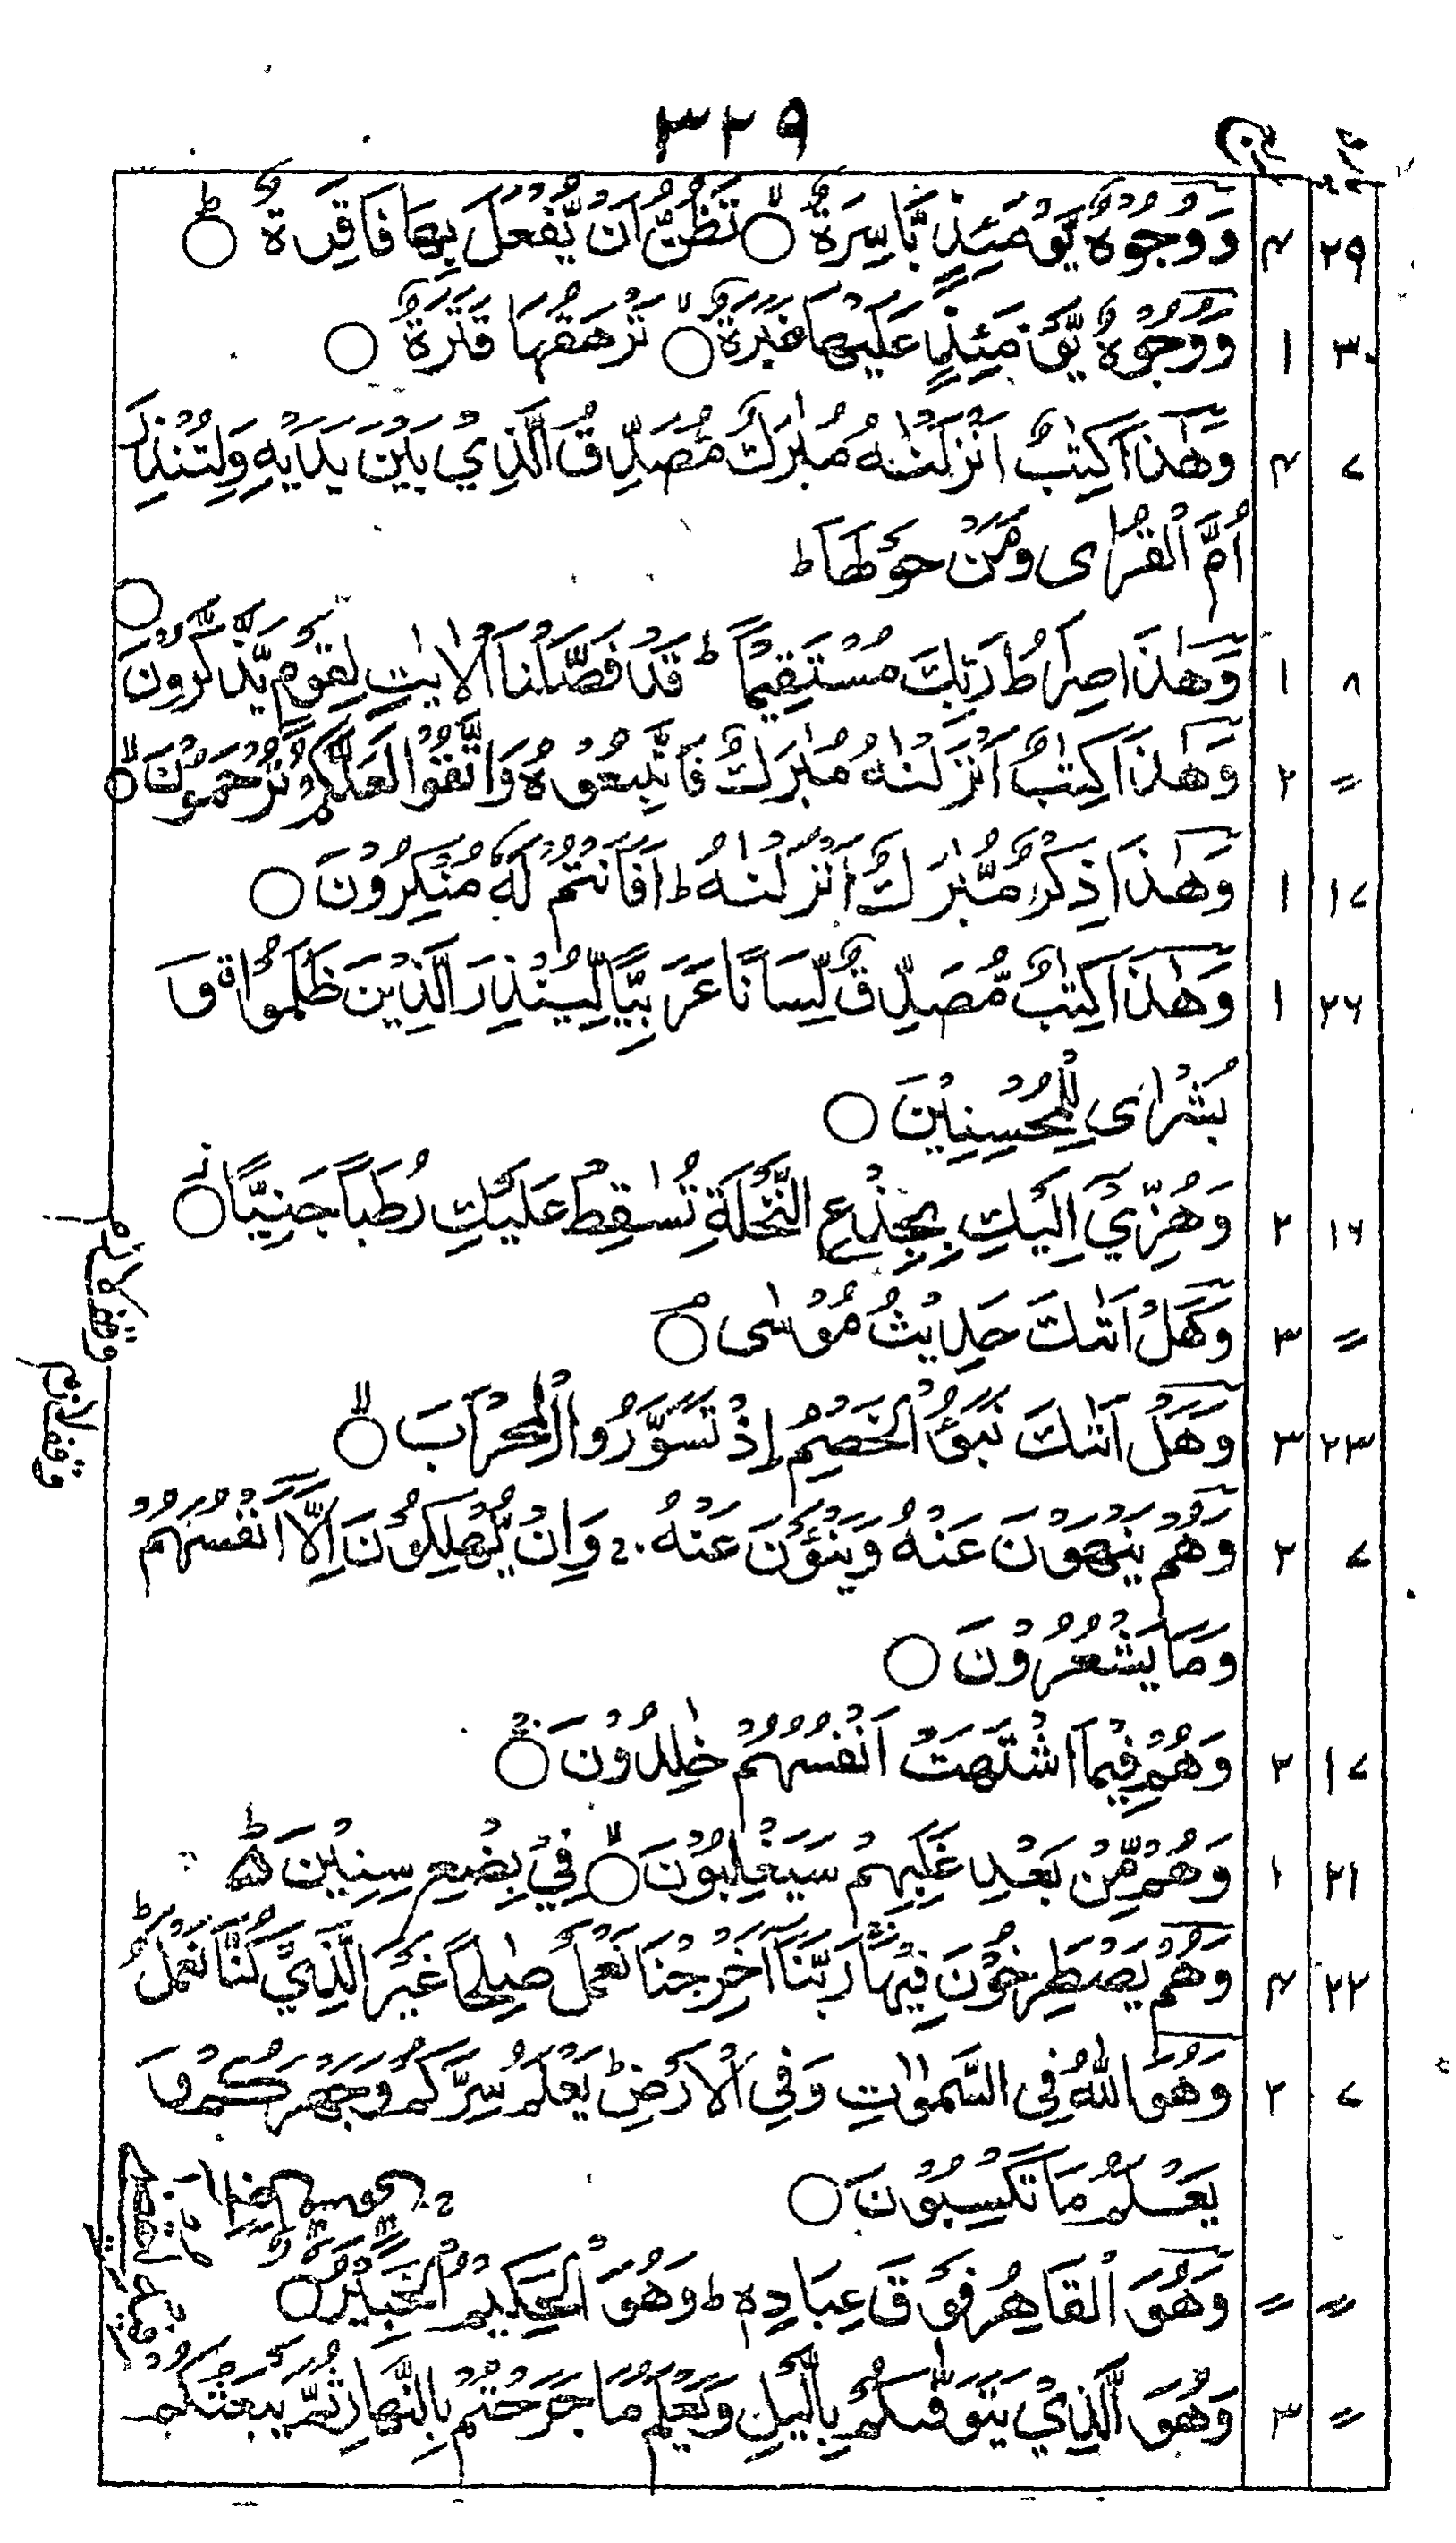 ٣٢٩
وَوُجُوْهٌ يَّوْمَئِذٍۭ بَاسِرَةٌ ۙ○ تَظُنُّ اَنْ يُّفْعَلَ بِهَا فَاقِرَةٌ ○ؕ ٤ ٢٩
وَوُجُوْهٌ يَّوْمَئِذٍ عَلَيْهَا غَبَرَةٌ ۙ○ تَرْهَقُهَا قَتَرَةٌ ○ ١ ٣٠
وَهٰذَا كِتٰبٌ اَنْزَلْنٰهُ مُبٰرَكٌ مُّصَدِّقُ الَّذِيْ بَيْنَ يَدَيْهِ وَلِتُنْذِرَ ٤ ٧
اُمَّ الْقُرٰى وَمَنْ حَوْلَهَا ؕ
وَهٰذَا صِرَاطُ رَبِّكَ مُسْتَقِيْمًا ؕ قَدْ فَصَّلْنَا الْاٰيٰتِ لِقَوْمٍ يَّذَّكَّرُوْنَ ○ ١ ٨
وَهٰذَا كِتٰبٌ اَنْزَلْنٰهُ مُبٰرَكٌ فَاتَّبِعُوْهُ وَاتَّقُوْا لَعَلَّكُمْ تُرْحَمُوْنَ ○ۙ ٢ =
وَهٰذَا ذِكْرٌ مُّبٰرَكٌ اَنْزَلْنٰهُ ؕ اَفَاَنْتُمْ لَهٗ مُنْكِرُوْنَ ○ ١ ١٧
وَهٰذَا كِتٰبٌ مُّصَدِّقٌ لِّسَانًا عَرَبِيًّا لِّيُنْذِرَ الَّذِيْنَ ظَلَمُوْا ۖ وَ ١ ٢٦
بُشْرٰى لِلْمُحْسِنِيْنَ ○
وَهُزِّيْۤ اِلَيْكِ بِجِذْعِ النَّخْلَةِ تُسٰقِطْ عَلَيْكِ رُطَبًا جَنِيًّا ○ ٢ ١٦
وَهَلْ اَتٰىكَ حَدِيْثُ مُوْسٰى ○ۘ ٣ =
وقف لازم
وَهَلْ اَتٰىكَ نَبَؤُا الْخَصْمِ اِذْ تَسَوَّرُوا الْمِحْرَابَ ○ۙ ٣ ٢٣
وقف لازم
وَهُمْ يَنْهَوْنَ عَنْهُ وَيَنْـَٔوْنَ عَنْهُ ۚ وَاِنْ يُّهْلِكُوْنَ اِلَّاۤ اَنْفُسَهُمْ ٢ ٧
وَمَا يَشْعُرُوْنَ ○
وَهُمْ فِيْمَا اشْتَهَتْ اَنْفُسُهُمْ خٰلِدُوْنَ ○ۚ ٢ ١٧
وَهُمْ مِّنْۢ بَعْدِ غَلَبِهِمْ سَيَغْلِبُوْنَ ○ۙ فِيْ بِضْعِ سِنِيْنَ ؕ ١ ٢١
وَهُمْ يَصْطَرِخُوْنَ فِيْهَا رَبَّنَاۤ اَخْرِجْنَا نَعْمَلْ صَالِحًا غَيْرَ الَّذِيْ كُنَّا نَعْمَلُ ؕ ٤ ٢٢
وَهُوَ اللّٰهُ فِى السَّمٰوٰتِ وَفِى الْاَرْضِ ؕ يَعْلَمُ سِرَّكُمْ وَجَهْرَكُمْ وَ ٢ ٧
يَعْلَمُ مَا تَكْسِبُوْنَ ○
وَهُوَ الْقَاهِرُ فَوْقَ عِبَادِهٖ ؕ وَهُوَ الْحَكِيْمُ الْخَبِيْرُ ○ = =
وَهُوَ الَّذِيْ يَتَوَفّٰىكُمْ بِالَّيْلِ وَيَعْلَمُ مَا جَرَحْتُمْ بِالنَّهَارِ ثُمَّ يَبْعَثُكُمْ ٣ =